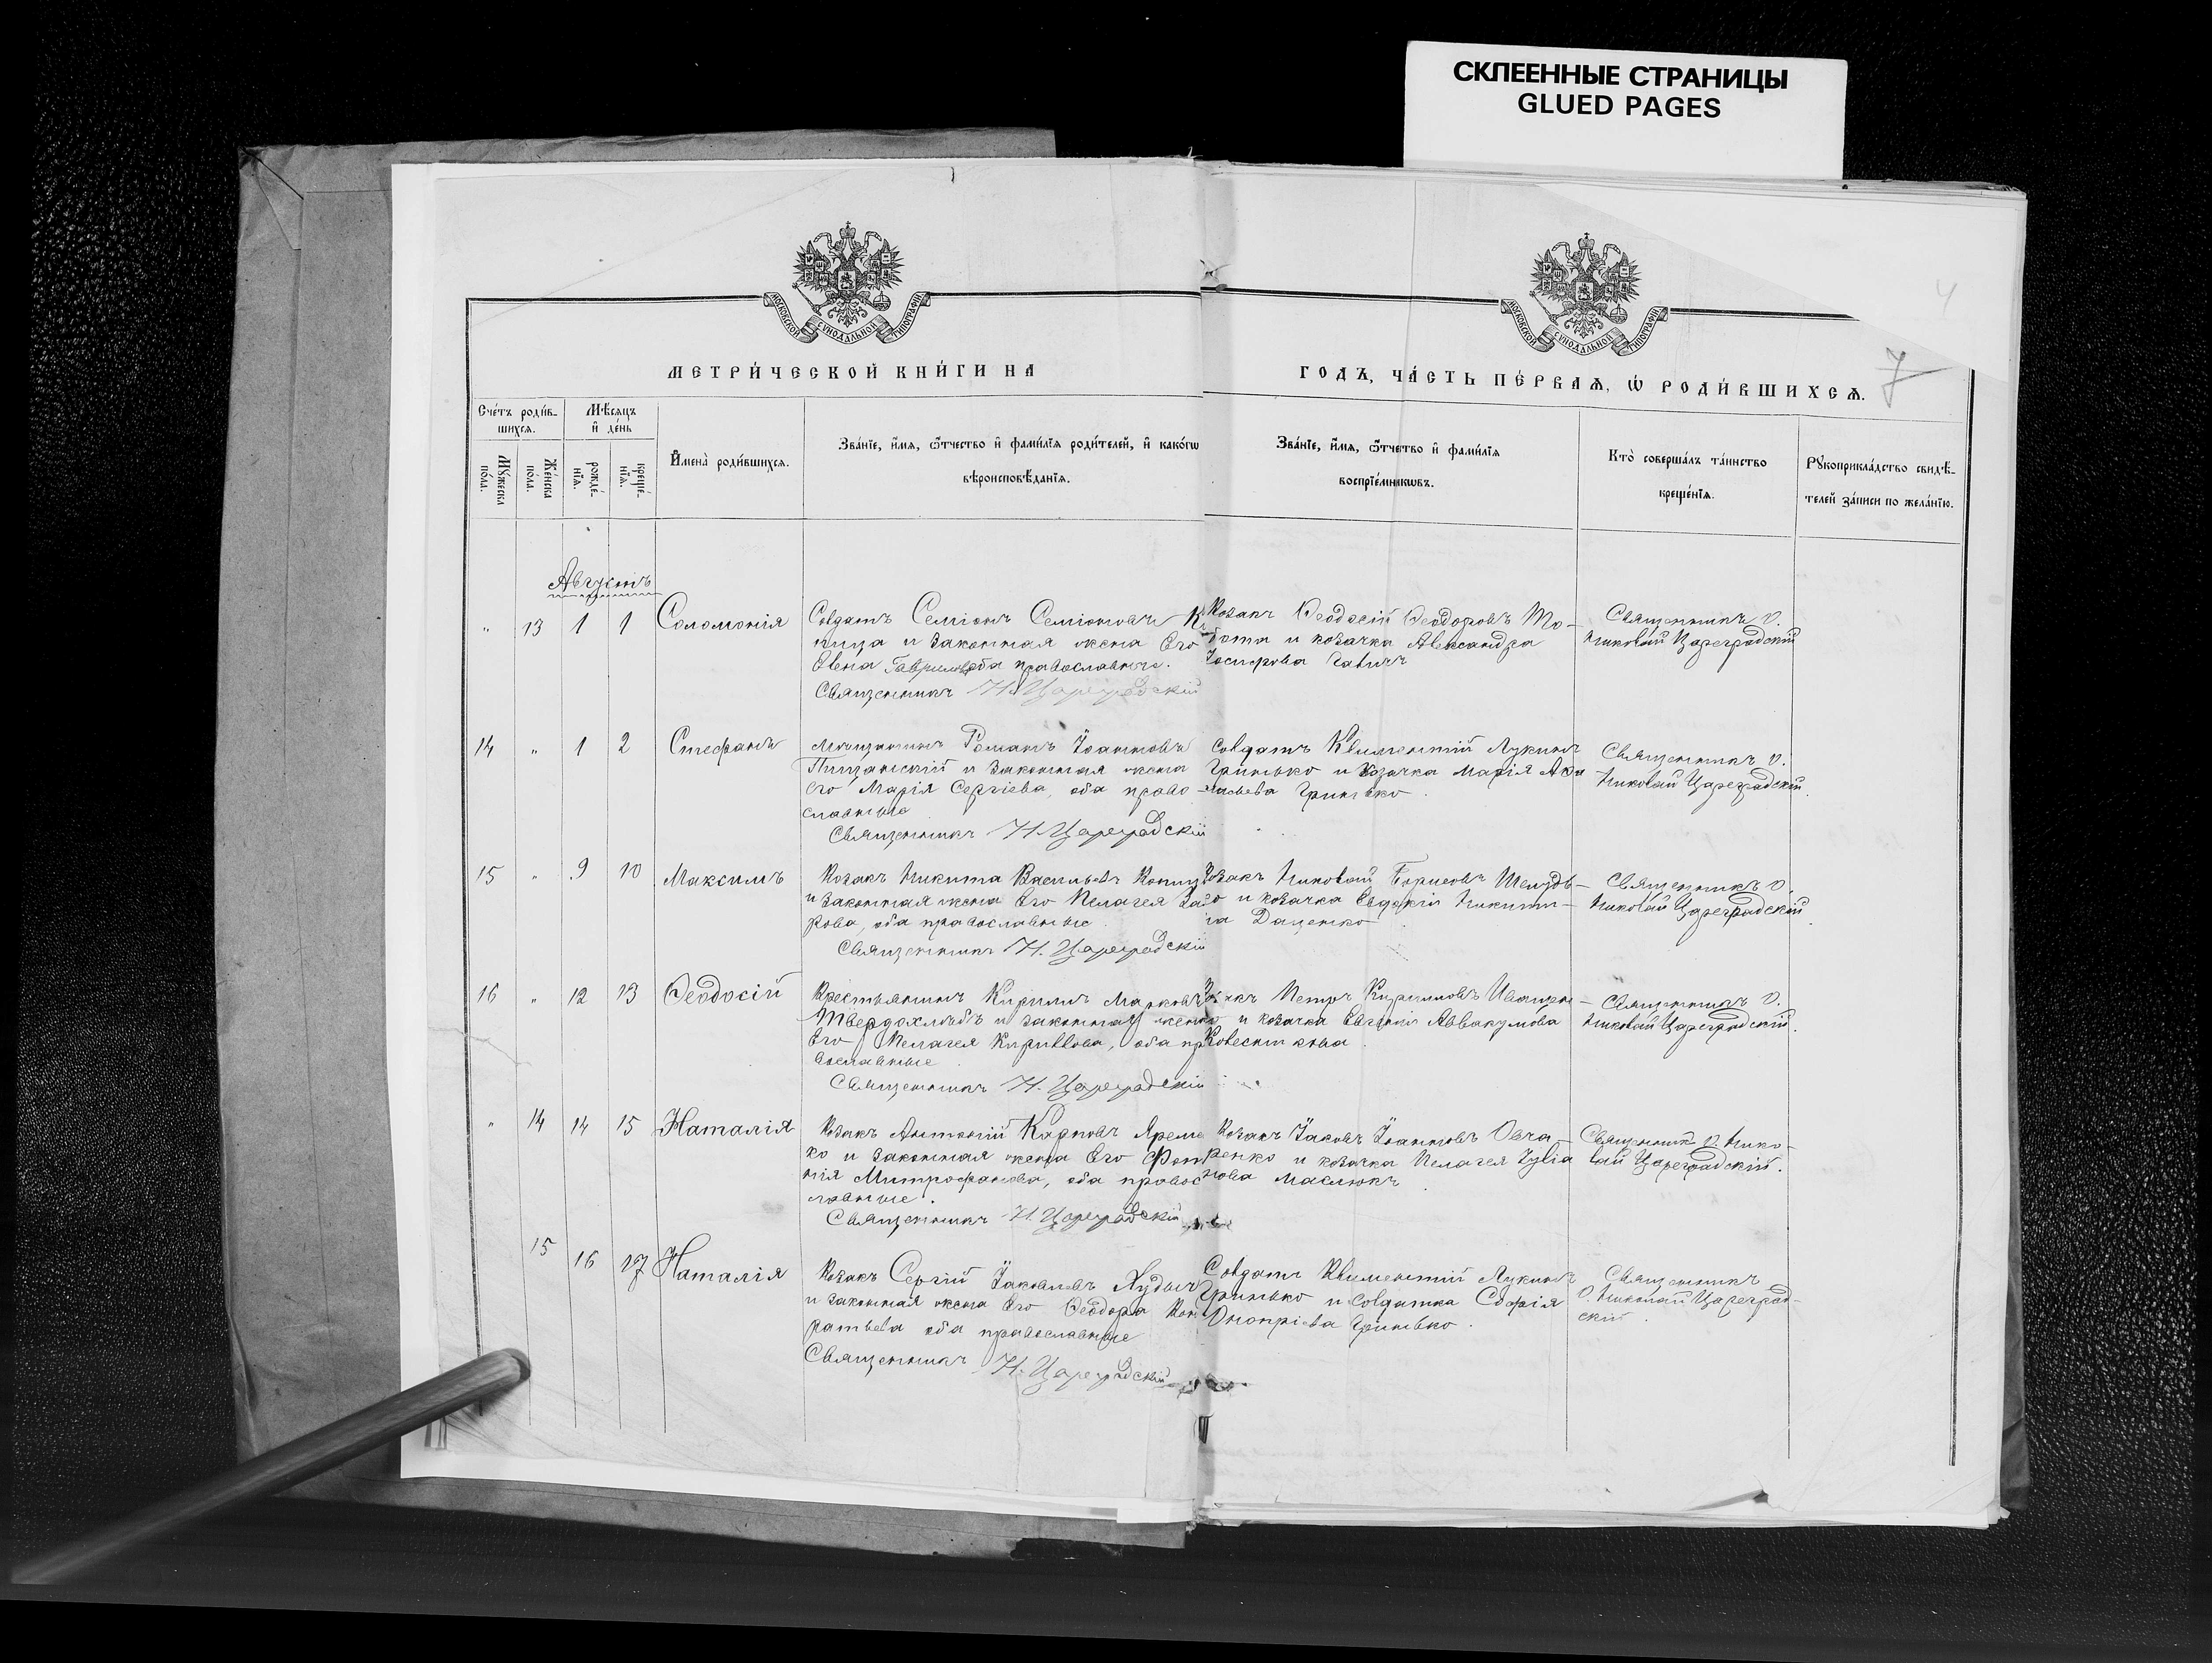 СКЛЕЕННЫЕ СТРАНИЦЫ
GLUED PAGES
МОСКОВСКОЙ СѴНОДАЛЬНОЙ ТИПОГРАФІИ
МОСКОВСКОЙ СѴНОДАЛЬНОЙ ТИПОГРАФІИ
4
7
МЕТРИ́ЧЕСКОЙ КНИ́ГИ НА
ГОДЪ, ЧА́СТЬ ПЕ́РВАѦ, Ѡ҆ РОДИ́ВШИХСѦ.
Сче́тъ роди́в-
шихсѧ.
Мѣ́сѧцъ
и҆ де́нь
Мꙋ́жеска
по́ла.
Же́нска
по́ла.
рожде́-
нїѧ.
креще́-
нїѧ.
И҆мена̀ роди́вшихсѧ.
Зва́нїе, и҆́мѧ, ѻ҆́тчество и҆ фами́лїѧ роди́телей, и҆ како́гѡ
вѣроисповѣ́данїѧ.
Зва́нїе, и҆́мѧ, ѻ҆́тчество и҆ фами́лїѧ
воспрїе́мникѡвъ.
Кто̀ соверша́лъ та́инство
креще́нїѧ.
Рꙋкоприкла́дство свидѣ́-
телей за́писи по жела́нїю.
Августъ
" 13 1 1 Соломонія
Солдатъ Семіонъ Семіоновъ
и законная жена Его
Елена Гаврилова оба православные.
Священникъ Н. Цареградскій
Козакъ Ѳеодосій Ѳеодоровъ
и козачка Александра
Священникъ о.
Николай Цареградскій
14 " 1 2 Стефанъ
Мѣщанинъ Романъ Іоанновъ
Пищанскій и законная жена
его Марія Сергіева, оба право-
славные
Священникъ Н. Цареградскій
Солдатъ Климентій Лукинъ
Гринько и козачка Марія
Гринько
Священникъ о.
Николай Цареградскій.
15 " 9 10 Максимъ
Козакъ Никита Васильевъ
и законная жена Его Пелагея
рова, оба православные
Священникъ Н. Цареградскій
Козакъ Николай Борисовъ Шелудь-
ко и козачка Евдокія Никити-
на Даценко
Священникъ о.
Николай Цареградскій.
16 " 12 13 Ѳеодосій
Крестьянинъ Кириллъ Марковъ
Твердохлѣбъ и законная жена
Его Пелагея Кириллова, оба пра
вославные
Священникъ Н. Цареградскій
Козакъ Петръ Кирилловъ
и козачка Евгенія Аввакумова
Священникъ о.
Николай Цареградскій.
" 14 14 15 Наталія
Козакъ Антоній Карповъ Яреме
ко и законная жена Его
нія Митрофанова, оба правос
лавные.
Священникъ Н. Цареградскій
Козакъ Іаковъ Іоанновъ Овча-
ренко и козачка Пелагея Іулія
нова Маслюкъ
Священникъ о. Нико-
лай Цареградскій.
15 16 17 Наталія
Козакъ Сергій Іаковлевъ
и законная жена Его Ѳеодора Кон
ратьева оба православные
Священникъ Н. Цареградскій
Солдатъ Климентій Лукинъ
Гринько и солдатка Софія
Онопріева Гринько.
Священникъ
о. Николай Цареград-
скій.